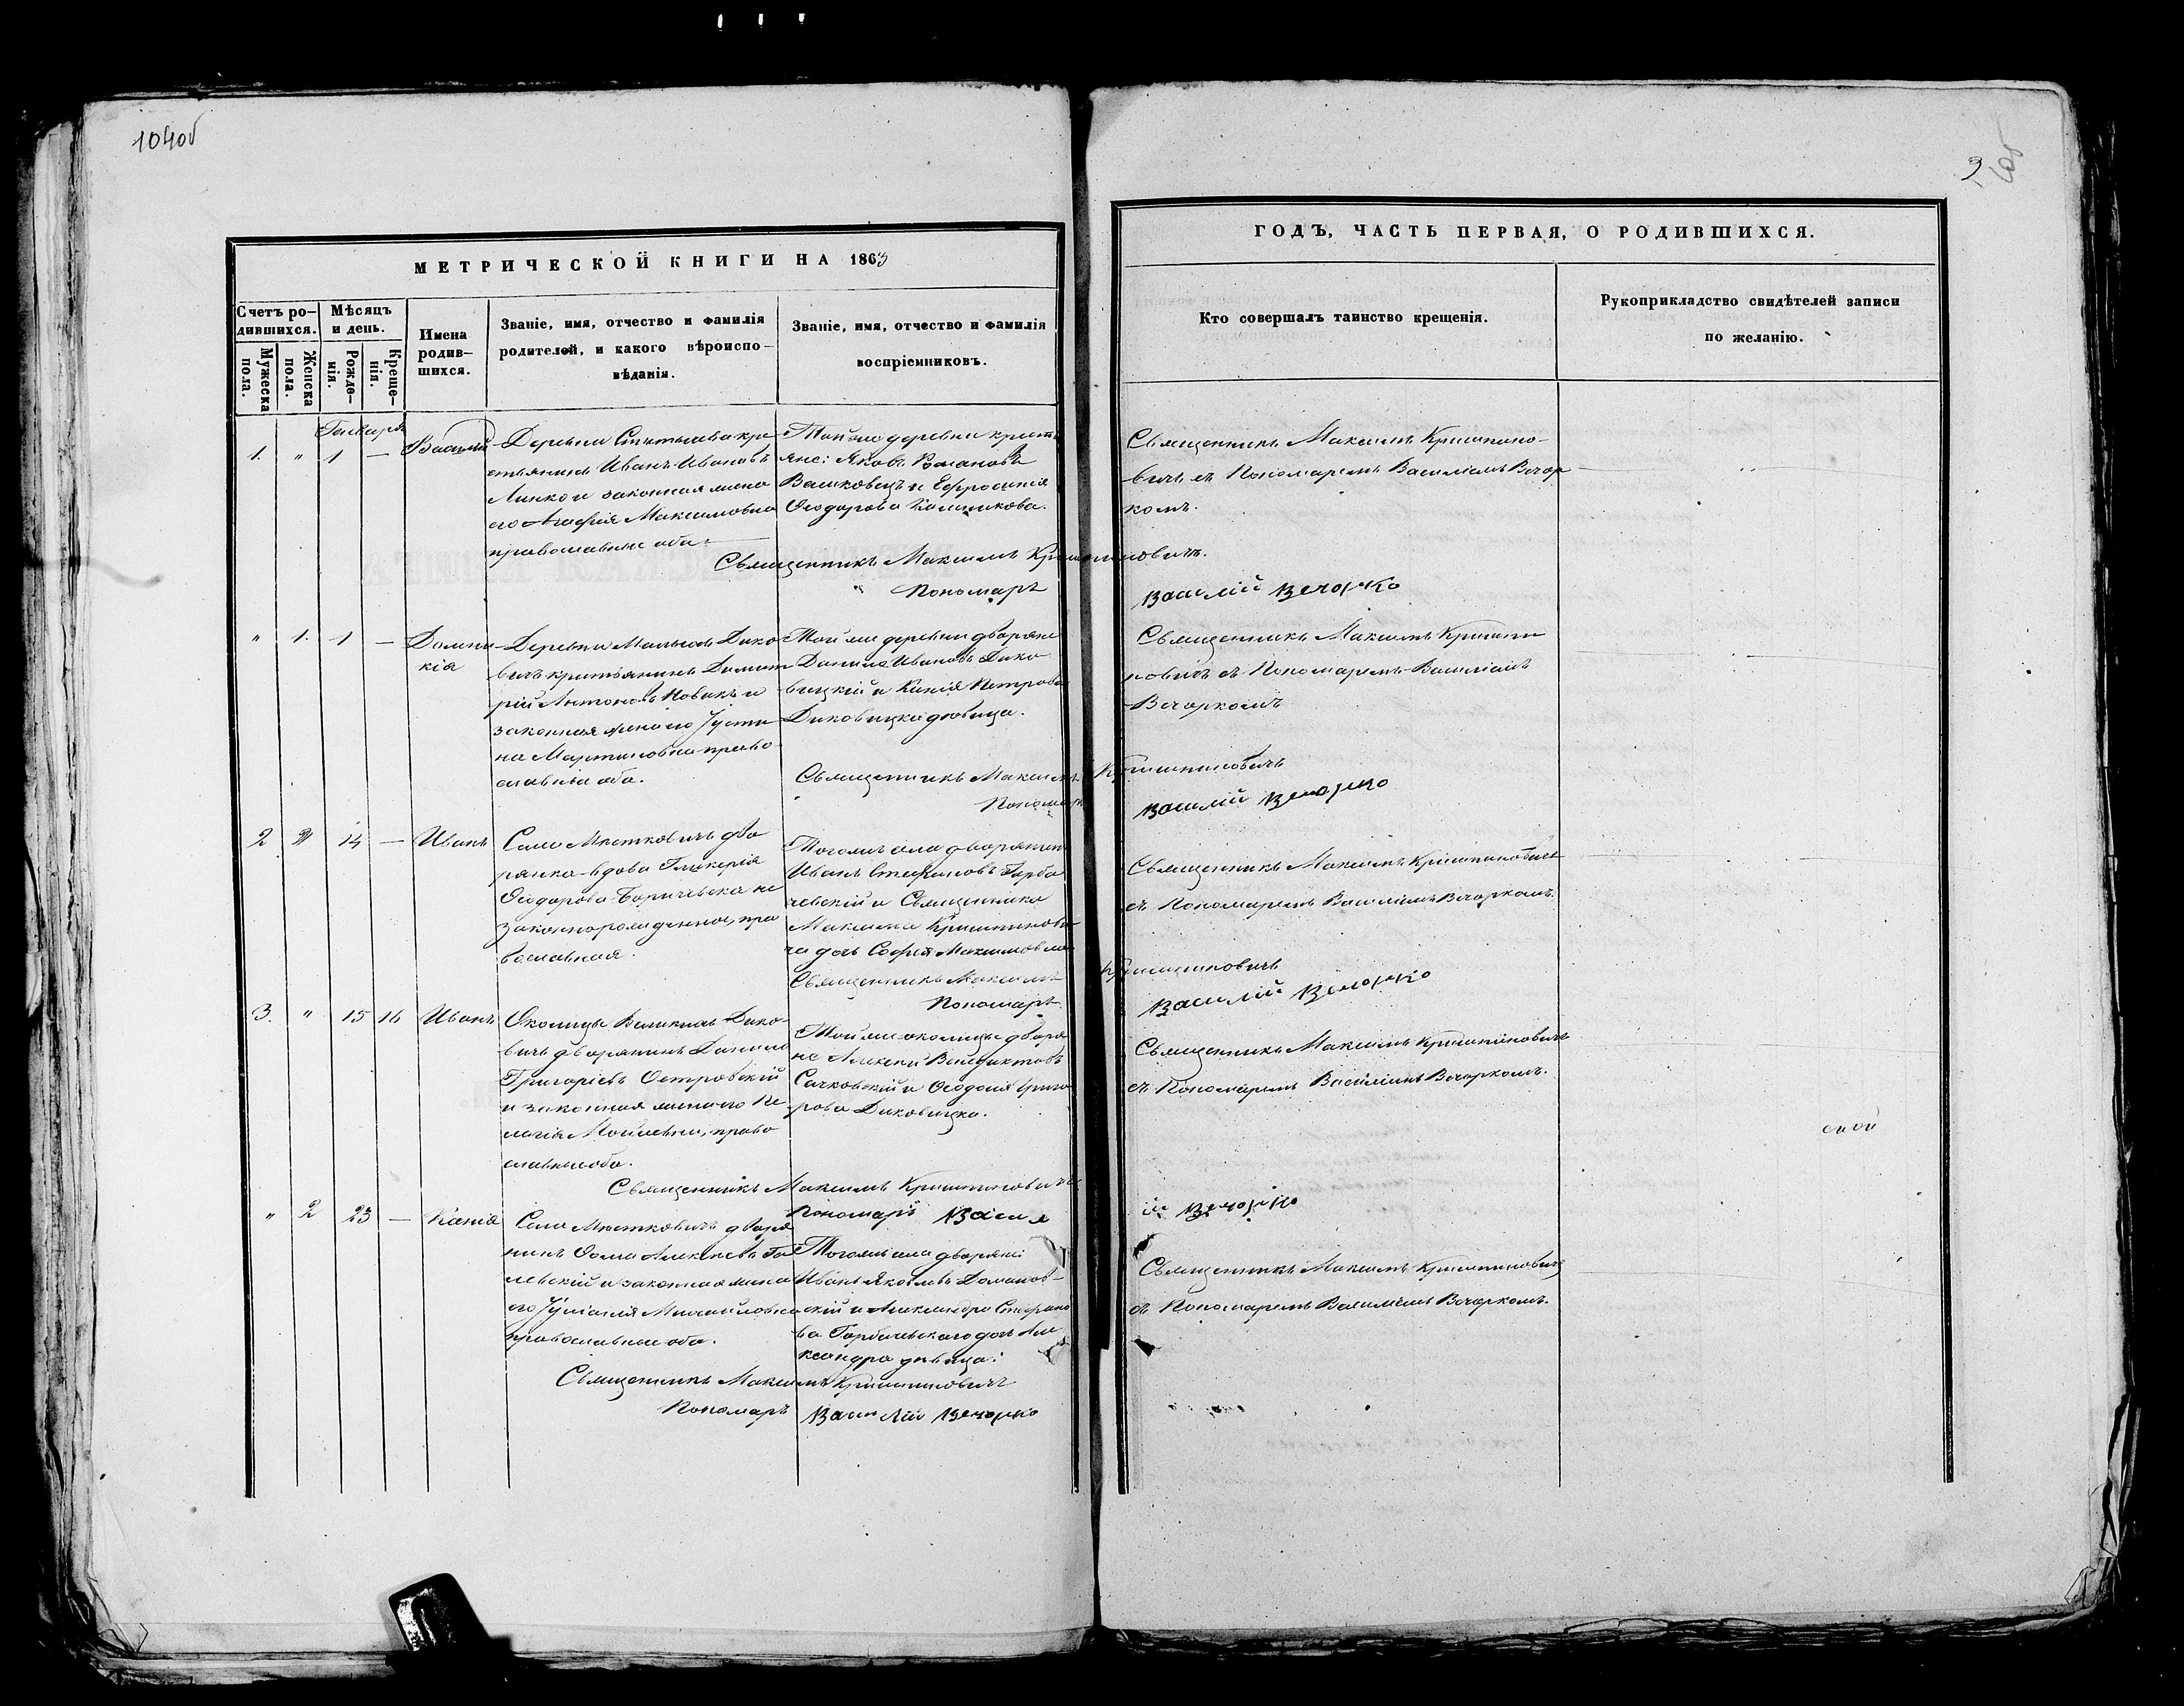 104об
9
МЕТРИЧЕСКОЙ КНИГИ НА 1863
ГОДЪ, ЧАСТЬ ПЕРВАЯ, О РОДИВШИХСЯ.
Счетъ ро-
дившихся.
Мужеска пола.
Женска пола.
Мѣсяцъ
и день.
Рожде-
нія.
Креще-
нія.
Имена
родив-
шихся.
Званіе, имя, отчество и фамилія
родителей, и какого вѣроиспо-
вѣданія.
Званіе, имя, отчество и фамилія
воспріемниковъ.
Кто совершалъ таинство крещенія.
Рукоприкладство свидѣтелей записи
по желанію.
Генваря
1. " 1 — Василій
Деревни кре-
стьянинъ Иванъ Ивановъ
и законная жена
его Агафія Максимовна
православные оба.
Той же деревни кресть
яне: Яковъ Романовъ
Вашковецъ и Евфросинія
Ѳеодорова
Священникъ Максимъ Кришпино-
вичъ съ Пономаремъ Василіемъ Вечор
комъ.
Священникъ Максимъ Кришпиновичъ.
Пономарь Василій Вечорко
" 1. 1 — Домни
кія
Деревни Малыхъ Дико
вичъ крестьянинъ Димит
рій Антоновъ Новикъ и
законная жена его Іусти
на Мартиновна право
славніи оба.
Той же деревни дворяне
Данило Ивановъ Дико
вицкій и Ксенія Петрова
Диковицка дѣвица.
Священникъ Максимъ Кришпи
новичъ съ Пономаремъ Василіемъ
Вечоркомъ
Священникъ Максимъ Кришпиновичъ
Пономарь Василій Вечорко
2 " 14 — Иванъ
Села Мѣстковичъ дво
рянка вдова Гликерія
Ѳеодорова Боричевска не
законнорожденное, пра
вославная.
Тогожъ села дворянинъ
Иванъ Стефановъ Горба
чевскій и Священника
Максима Кришпинови
ча дочь Софія Максимовна
Священникъ Максимъ Кришпиновичъ
съ Пономаремъ Василіемъ Вечоркомъ.
Священникъ Максимъ Кришпиновичъ
Пономарь Василій Вечорко
3. " 15 16 Иванъ
Околицы Великихъ Дико-
вичъ дворянинъ Данило
Григорієвъ Островскій
и законная жена его Пе
лагія Моисѣевна, право
славные оба.
Той же околицы дворя
не Алексѣй Венедиктовъ
Сачковскій и Ѳеодосія Григо
рова Диковицка.
Священникъ Максимъ Кришпиновичъ
съ Пономаремъ Василіемъ Вечоркомъ.
Священникъ Максимъ Кришпиновичъ
Пономарь Василій Вечорко
" 2 23 — Ксенія
Села Мѣстковичъ дворя
нинъ Ѳома Алексѣевъ
левскій и законная жена
его Іуліанія Михайловна
православные оба.
Тогожъ села дворяне:
Иванъ Яковлевъ Доманов-
скій и Александра Стефано
ва Горбачевскаго дочь Але
ксандра дѣвица.
Священникъ Максимъ Кришпиновичъ
съ Пономаремъ Василіемъ Вечоркомъ.
Священникъ Максимъ Кришпиновичъ
Пономарь Василій Вечорко